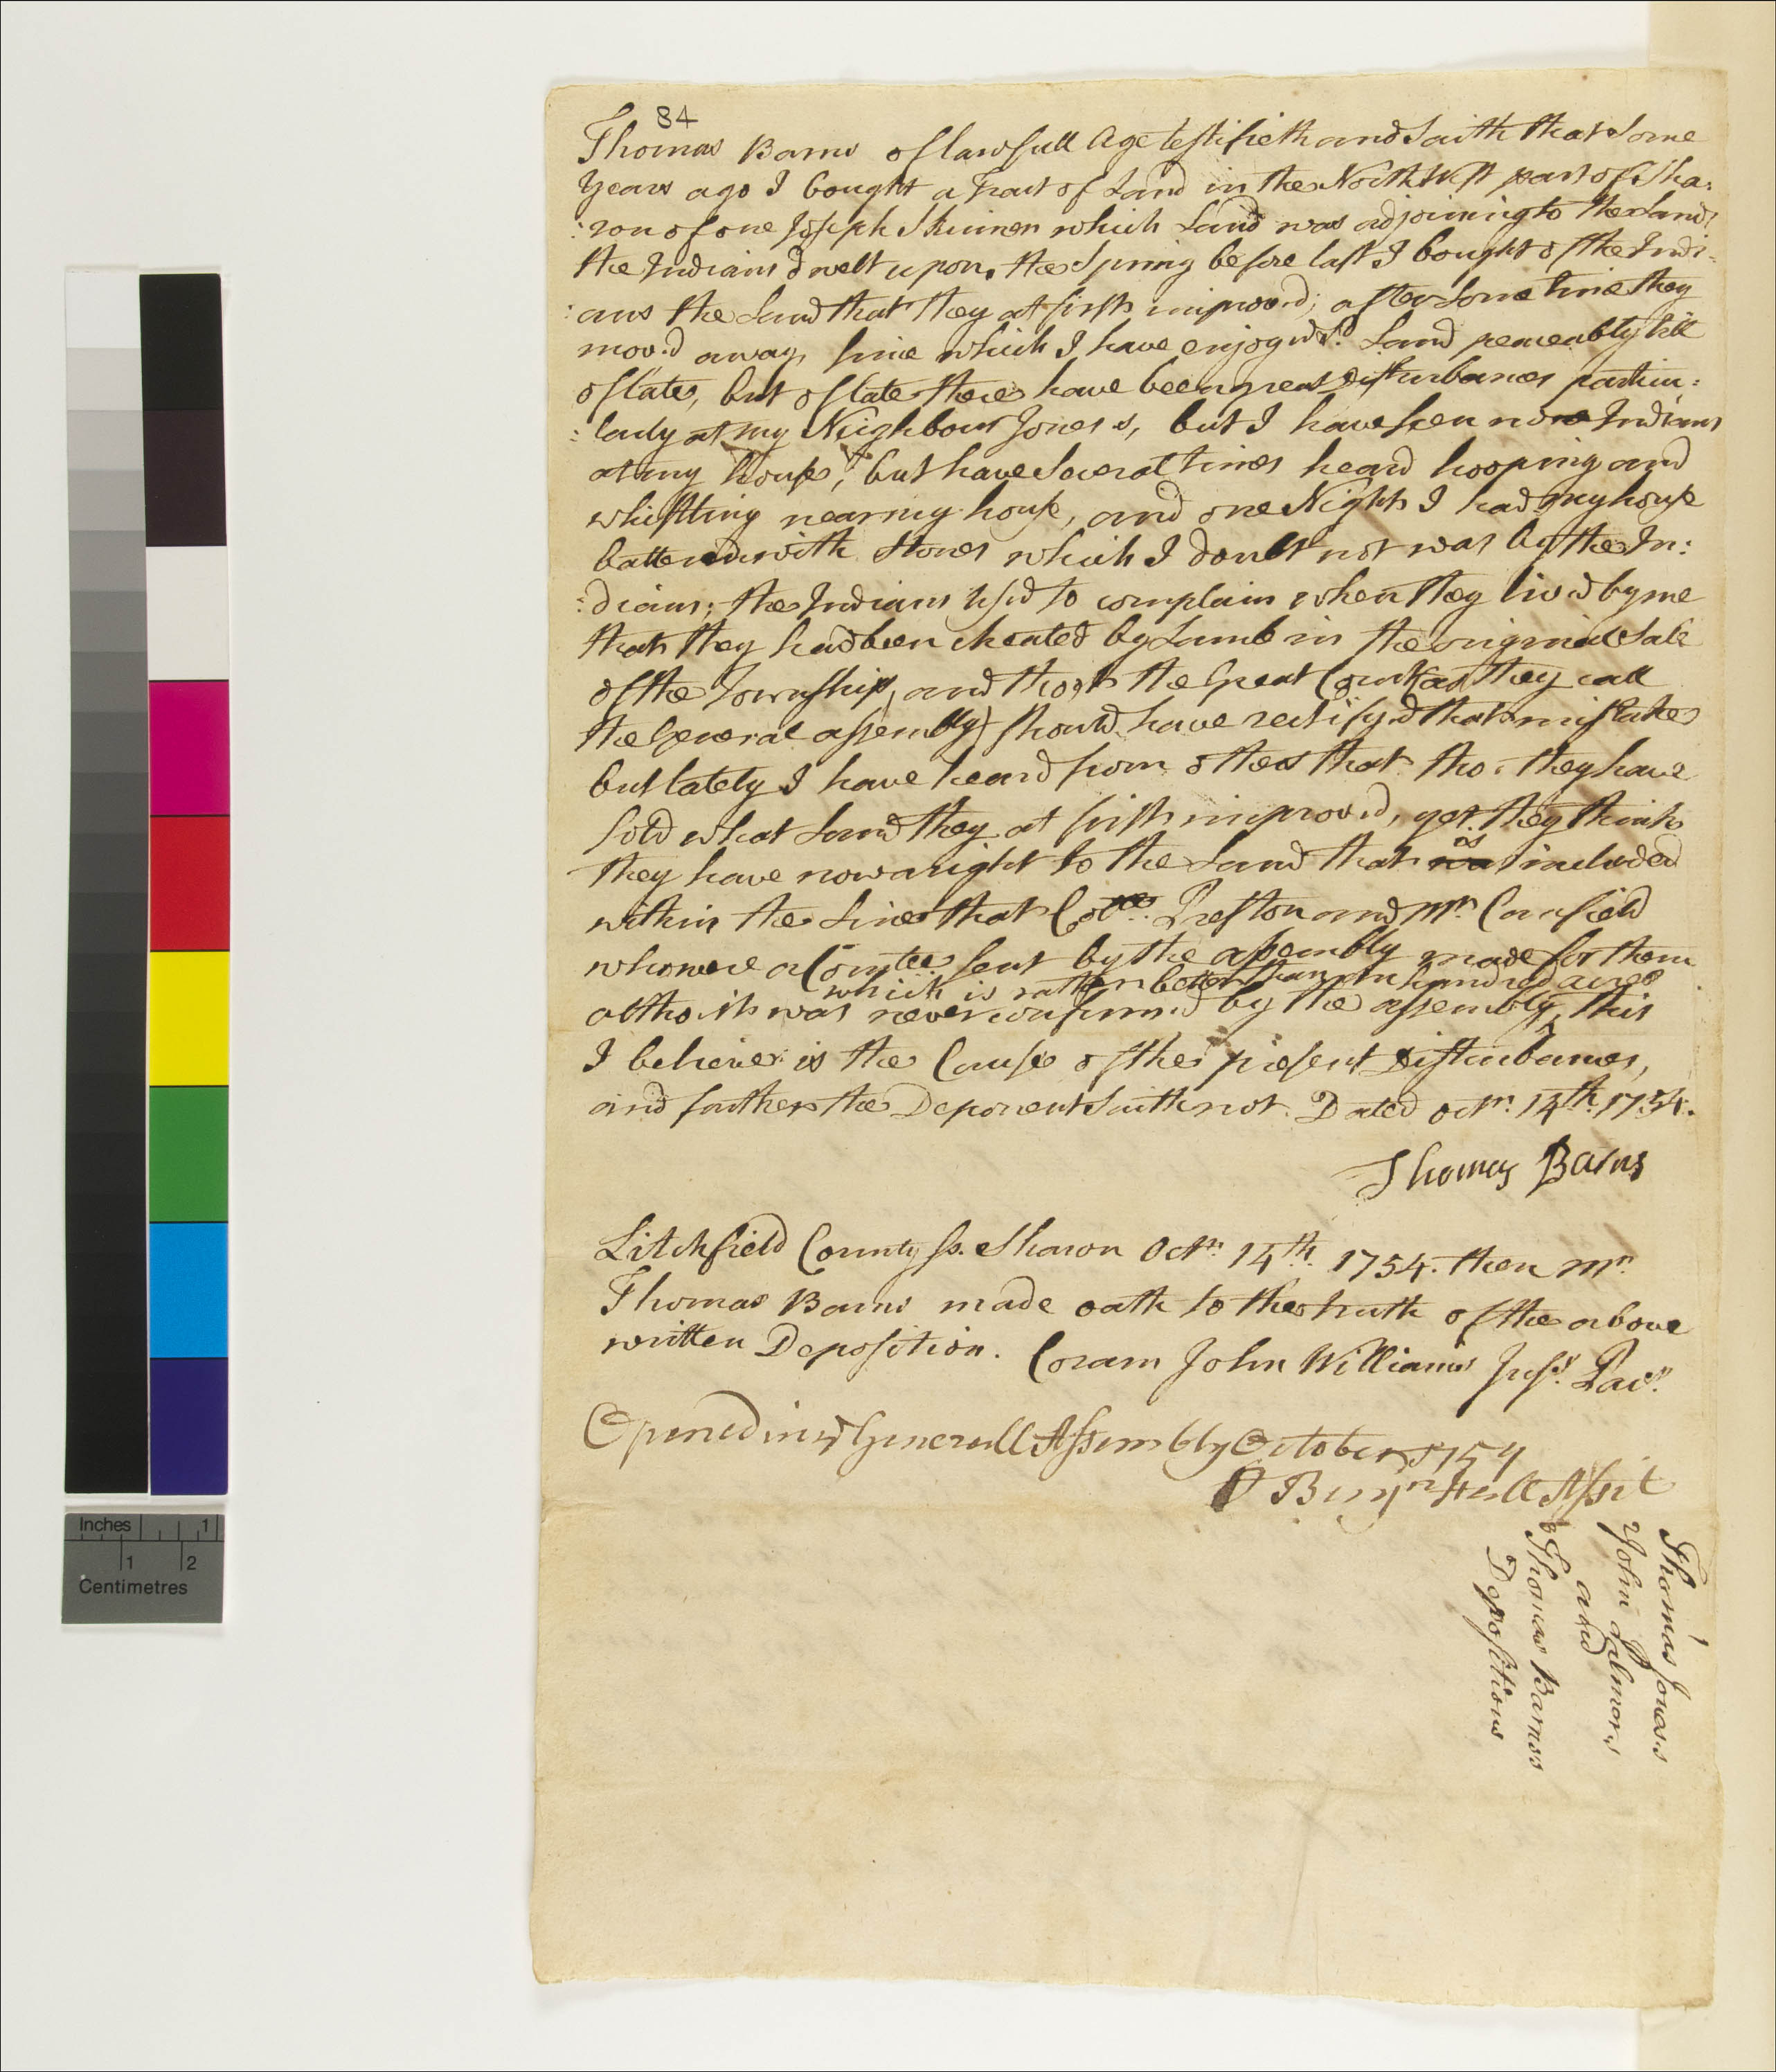 84
Thomas Barns of lawfull Age testifieth and Saith that Some
Years ago I bought a Tract of Land in the North West part of Sha:
:ron of one Joseph Skinner which Land was adjoining to the Land
the Indians dwelt upon, the Spring before last I bought of the Indi:
:ans the Land that they at first improv'd; after Some time they
mov'd away, since which I have enjoy'd sd. Land peaceably till
of late, but of late there have been great Disturbances particu:
:larly at my Neighbour Jones's, but I have seen none Indians
at my house, but have Several times heard hooping and
whistling near my house, and one Night I had my house
batter'd with Stones which I doubt not was by the In:
:dians; the Indians us'd to complain when they liv'd by me
that they had been cheated by Lamb in the original Sale
of the Township, and tho't the Great Court (as they call
the General assembly) should have rectify'd that mistake
but lately I have heard from others that tho' they have
sold what Land they at first improv'd, yet they think
they have now a right to the Land that is included
within the Lines that Preston and Mr. Canfield
who were a Comtee sent by the assembly made for them
which is rather better than an hundred acres
altho it was never confirm'd by the assembly, this
I believe is the Cause of the present Disturbances,
and farther the Deponent Saith not. Dated Octr. 14th. 1754.
Thomas Barns
Litchfield County ss. Sharon Octr. 14th. 1754. then Mr.
Thomas Barns made oath to the truth of the above
written Deposition. Coram John Williams Just. Pacs.
Opened in ye Generall Assembly October 1754
Benjn Hall Assit
Thomas Jones's
John Palmers
and
Thomas Barnses
Depositions
Inches 1
1 2
Centimetres